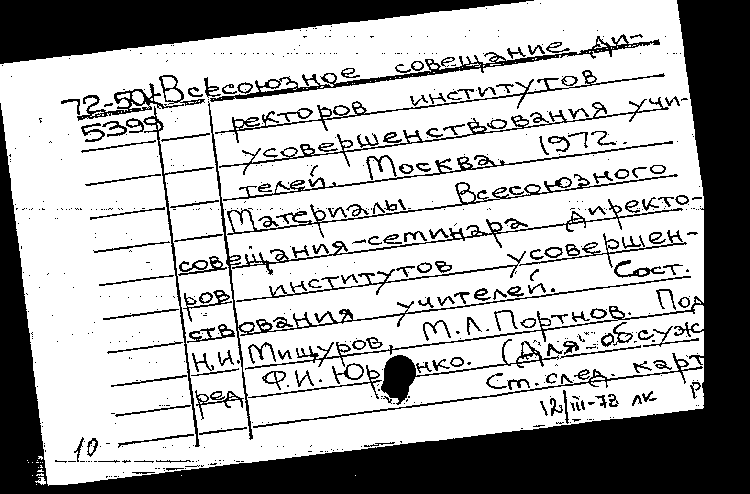 72-50к Всесоюзное совещание ди-
5399 ректоров институтов
усовершенствования учи-
телей. Москва. 1972.
Материалы Всесоюзного
совещания-семинара директо-
ров институтов усовершен-
ствования учителей. Сост.
Н.И. Мищуров, М.Л. Портнов. Под
ред. Ф.И. (Для обслуж
Ст. след. карт
12/III-73 лк
10